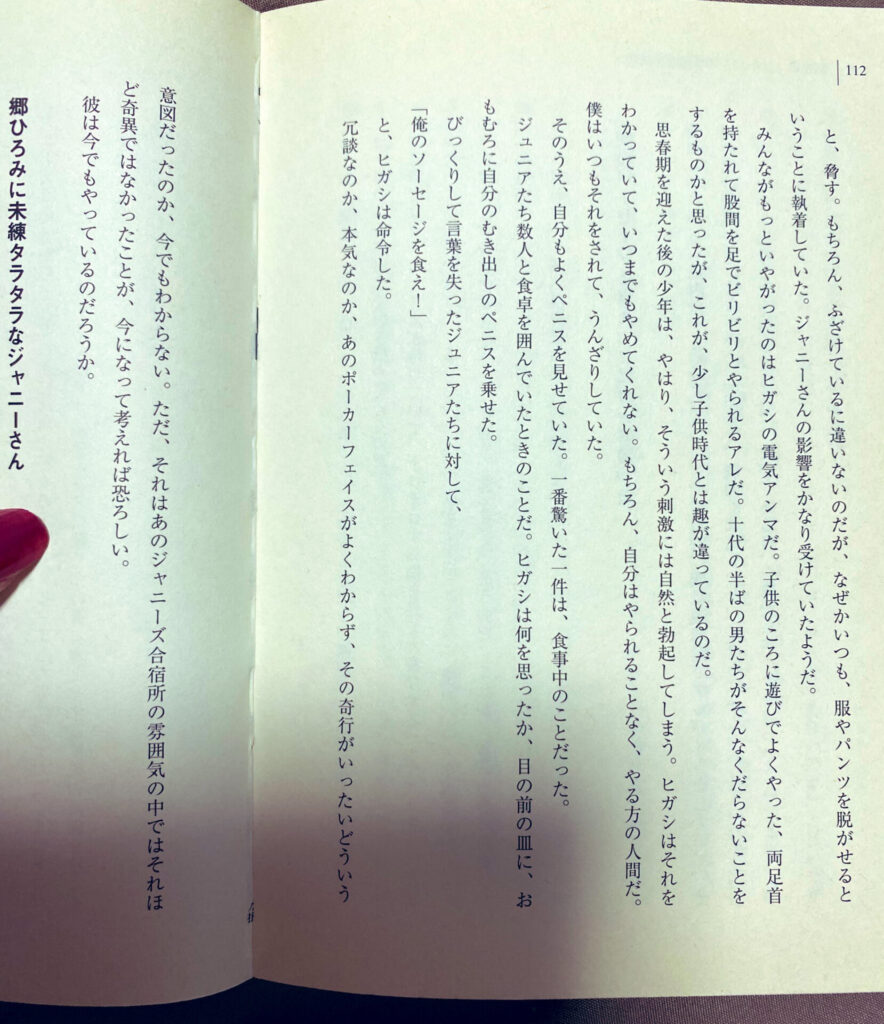 112
と、脅す。もちろん、ふざけているに違いないのだが、なぜかいつも、服やパンツを脱がせると
いうことに執着していた。ジャニーさんの影響をかなり受けていたようだ。
みんながもっといやがったのはヒガシの電気アンマだ。子供のころに遊びでよくやった、両足首
を持たれて股間を足でビリビリとやられるアレだ。十代の半ばの男たちがそんなくだらないことを
するものかと思ったが、これが、少し子供時代とは趣が違っているのだ。
思春期を迎えた後の少年は、やはり、そういう刺激には自然と勃起してしまう。ヒガシはそれを
わかっていて、いつまでもやめてくれない。もちろん、自分はやられることなく、やる方の人間だ。
僕はいつもそれをされて、うんざりしていた。
そのうえ、自分もよくペニスを見せていた。一番驚いた一件は、食事中のことだった。
ジュニアたち数人と食卓を囲んでいたときのことだ。ヒガシは何を思ったか、目の前の皿に、お
もむろに自分のむき出しのペニスを乗せた。
びっくりして言葉を失ったジュニアたちに対して、
「俺のソーセージを食え！」
と、ヒガシは命令した。
冗談なのか、本気なのか、あのポーカーフェイスがよくわからず、その奇行がいったいどういう
意図だったのか、今でもわからない。ただ、それはあのジャニーズ合宿所の雰囲気の中ではそれほ
ど奇異ではなかったことが、今になって考えれば恐ろしい。
彼は今でもやっているのだろうか。
郷ひろみに未練タラタラなジャニーさん